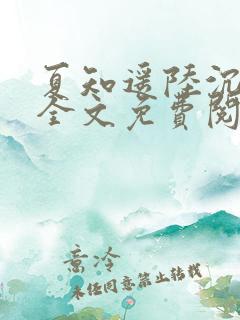 夏知遥陸沉
全文免費閱
意冷
未经同意禁止转载